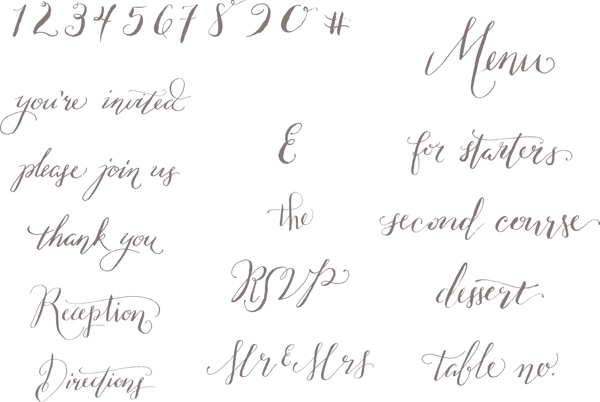 1 2 3 4 5 6 7 8 9 0 #
you're invited
please join us
thank you
Reception
Directions
&
the
RSVP
Mr & Mrs
Menu
for starters
second course
dessert
table no.